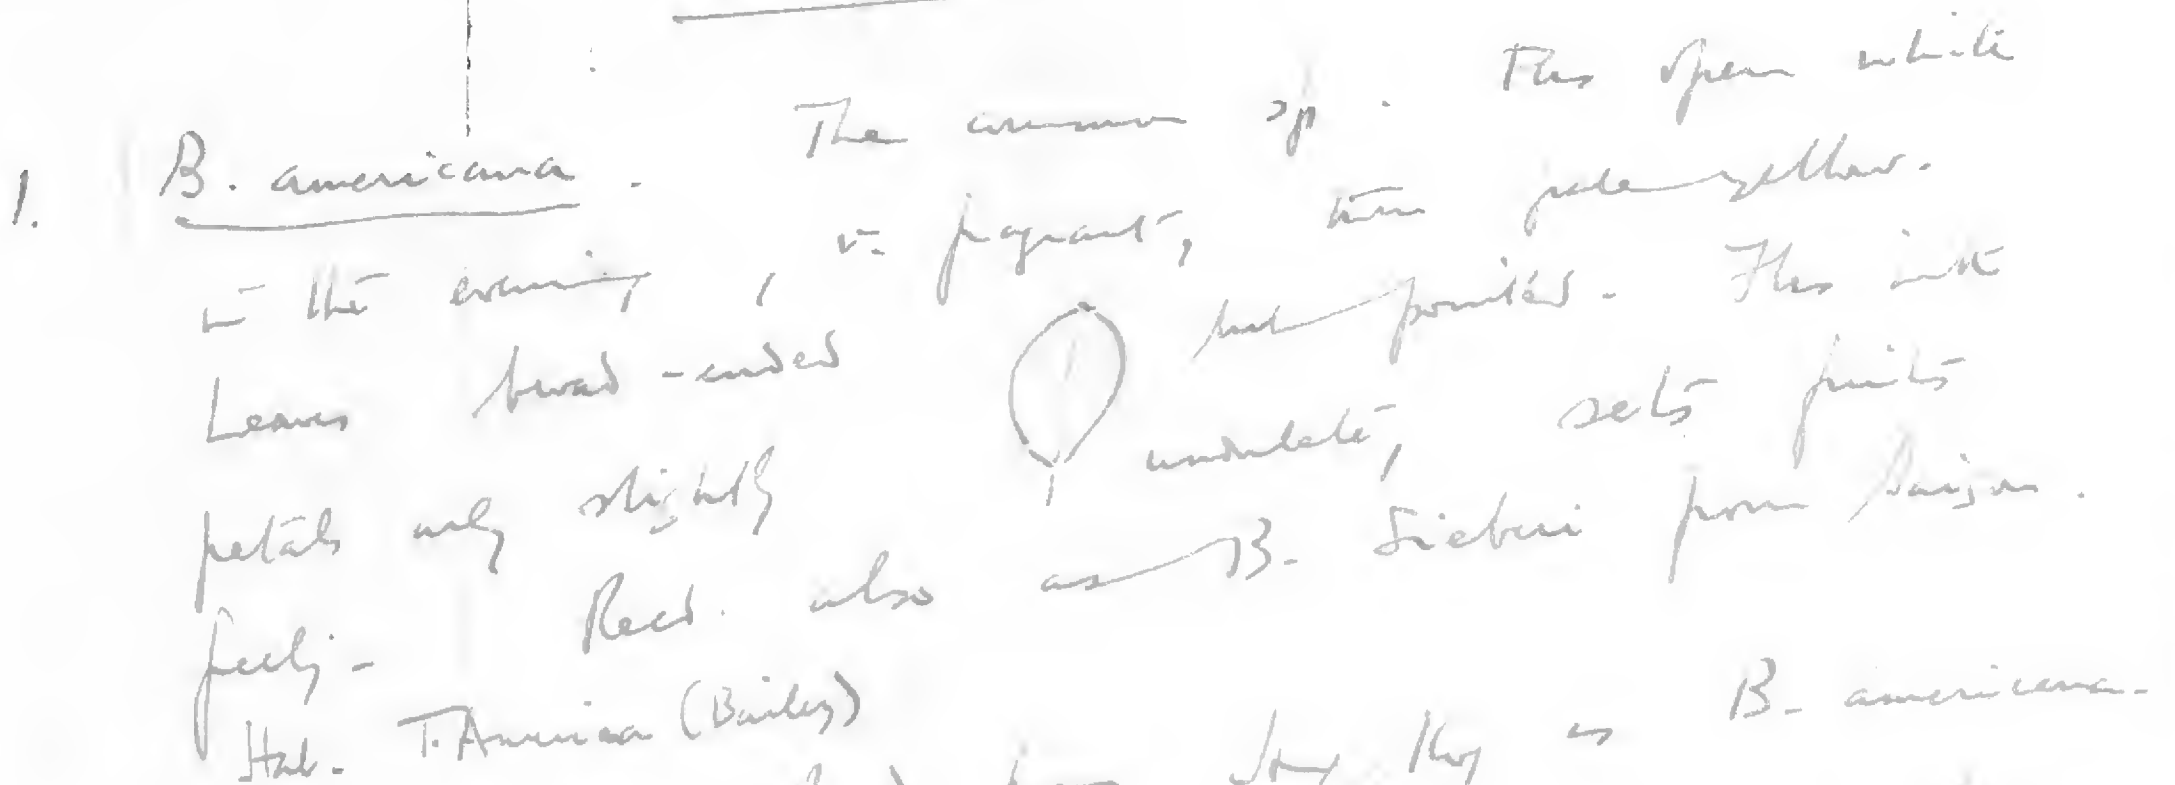 1. B. americana. The common sp. Fls open white
in the evening, v. fragrant, turn pale yellow.
Leaves broad-ended but pointed. Fls with
petals only slightly undulate, sets fruits
freely. Recd. also as B. Sieberi from Saigon.
Hab. T. America (Bailey)
Hong Kong as B. americana.